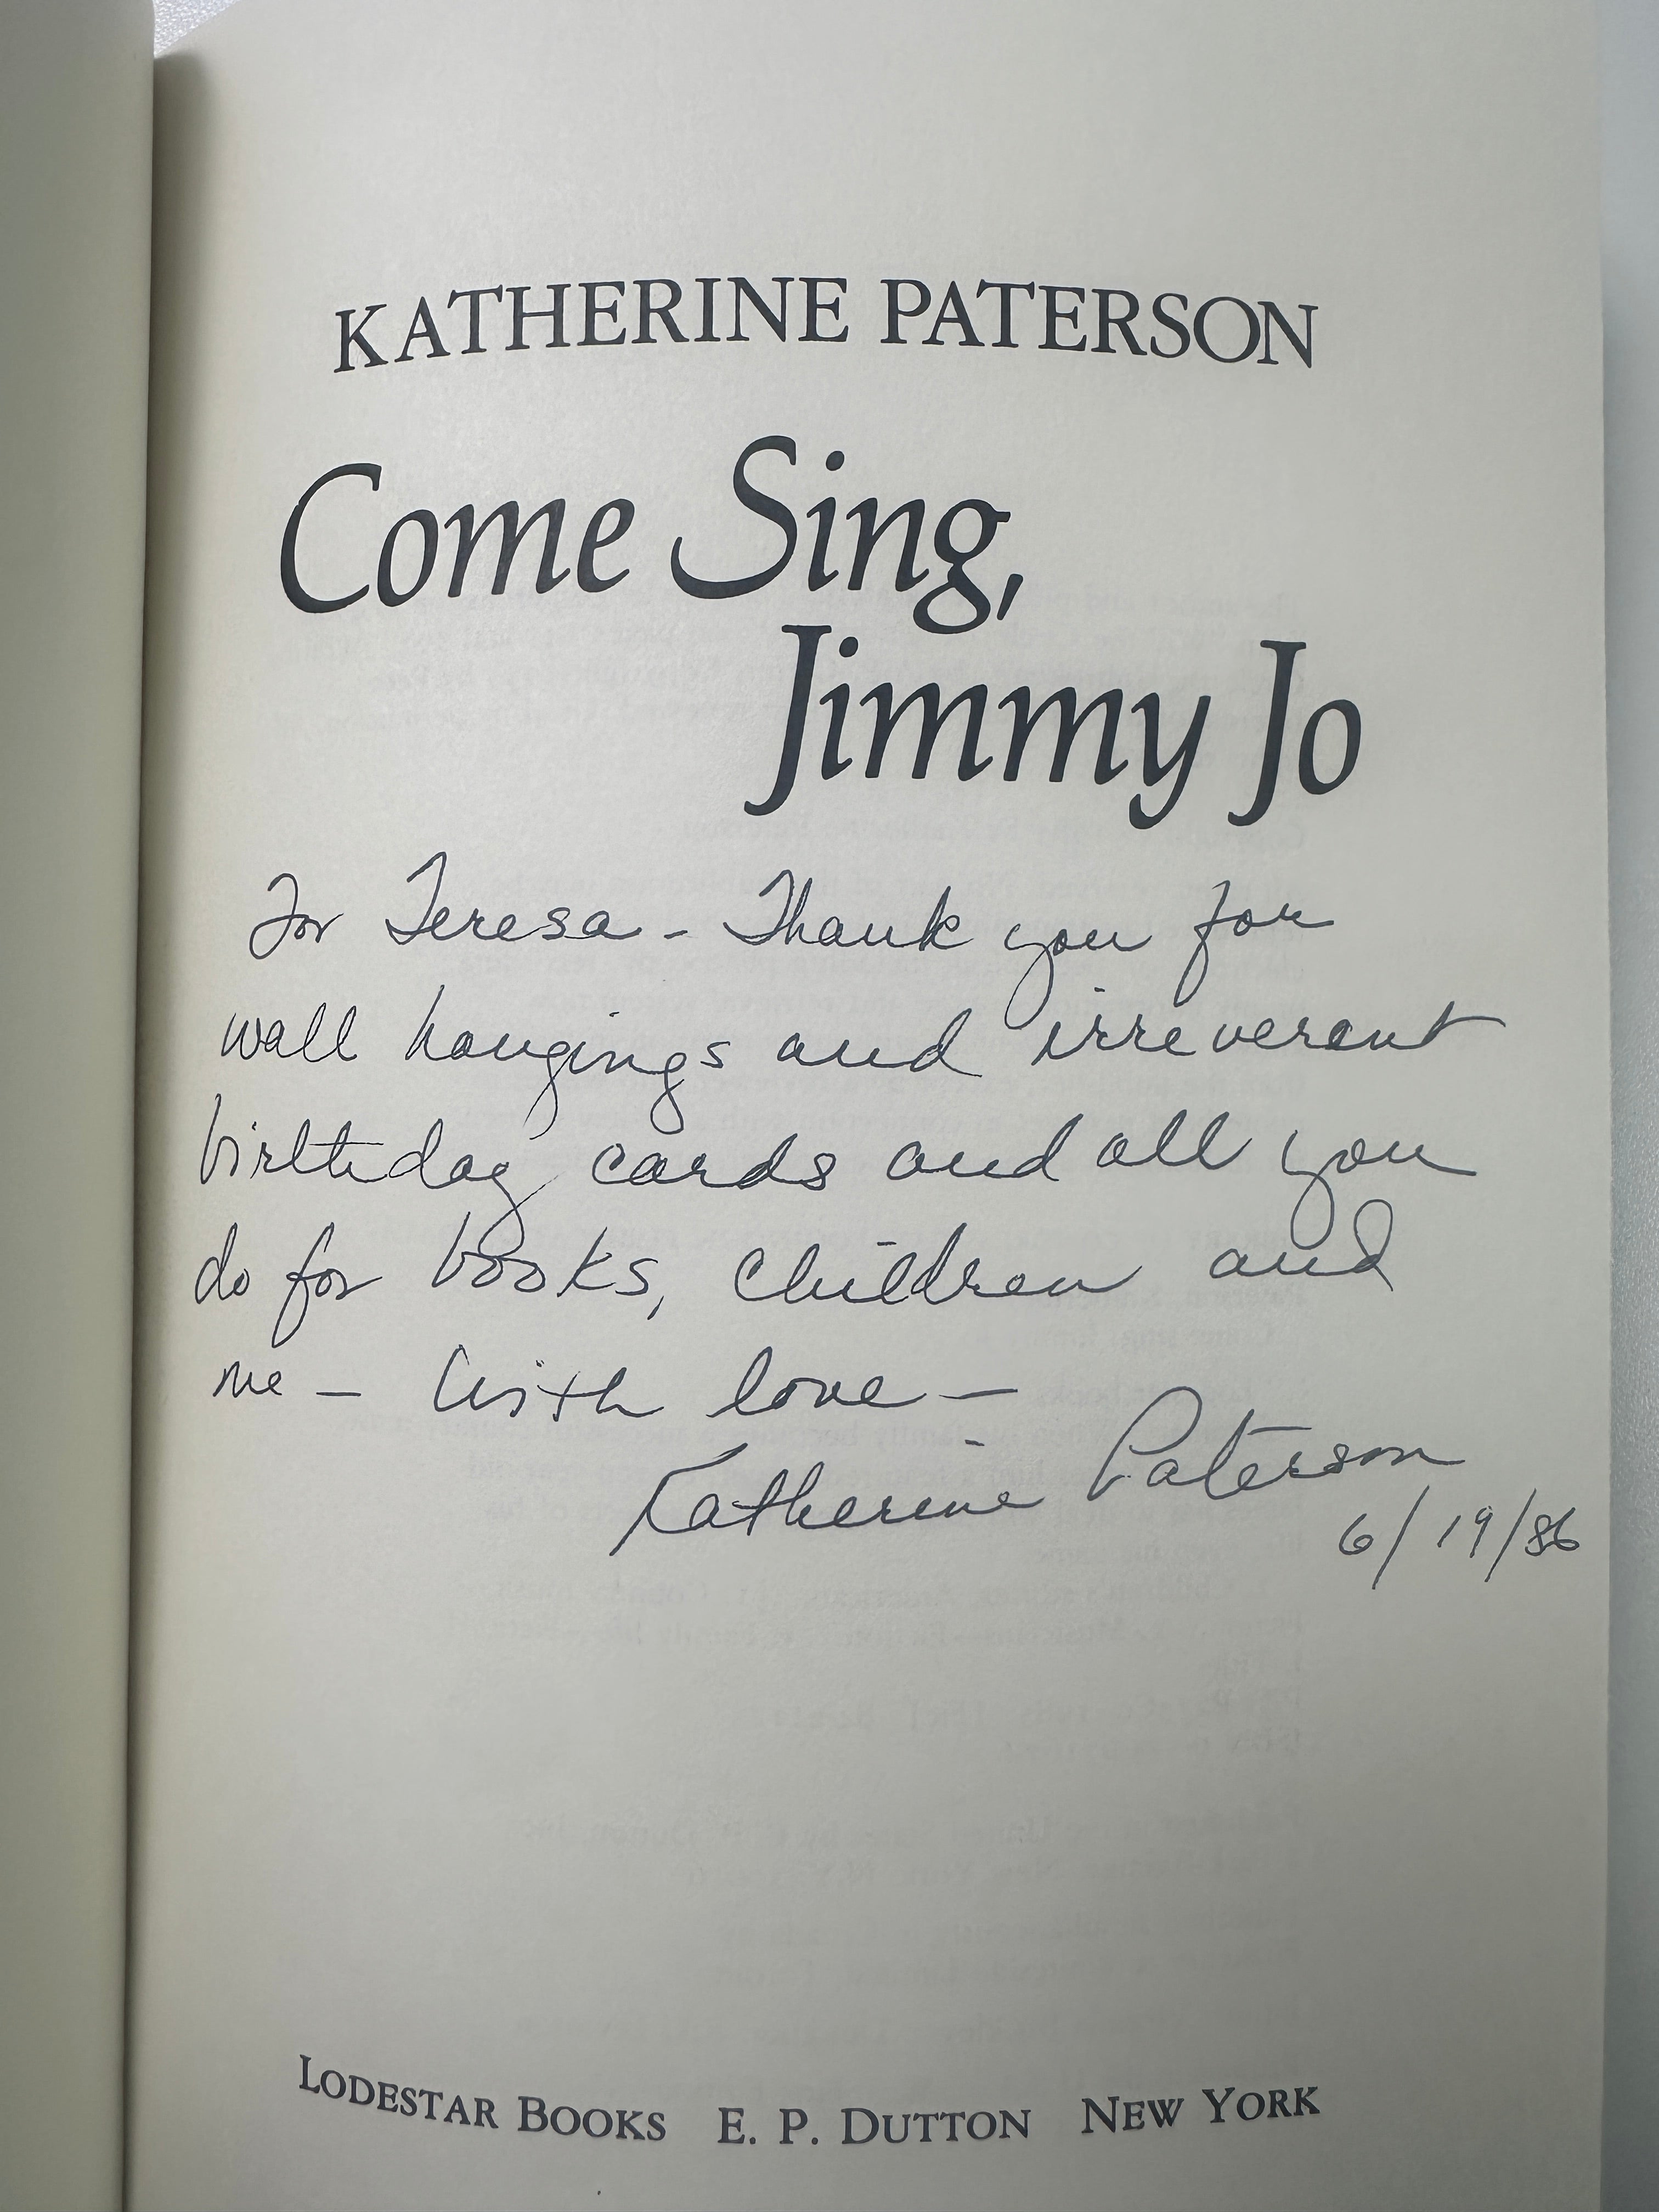 KATHERINE PATERSON
Come Sing,
Jimmy Jo
For Teresa - Thank you for
wall hangings and irreverant
birthday cards and all you
do for books, children and
me – With love –
Katherine Paterson
6/19/86
LODESTAR BOOKS E. P. DUTTON NEW YORK